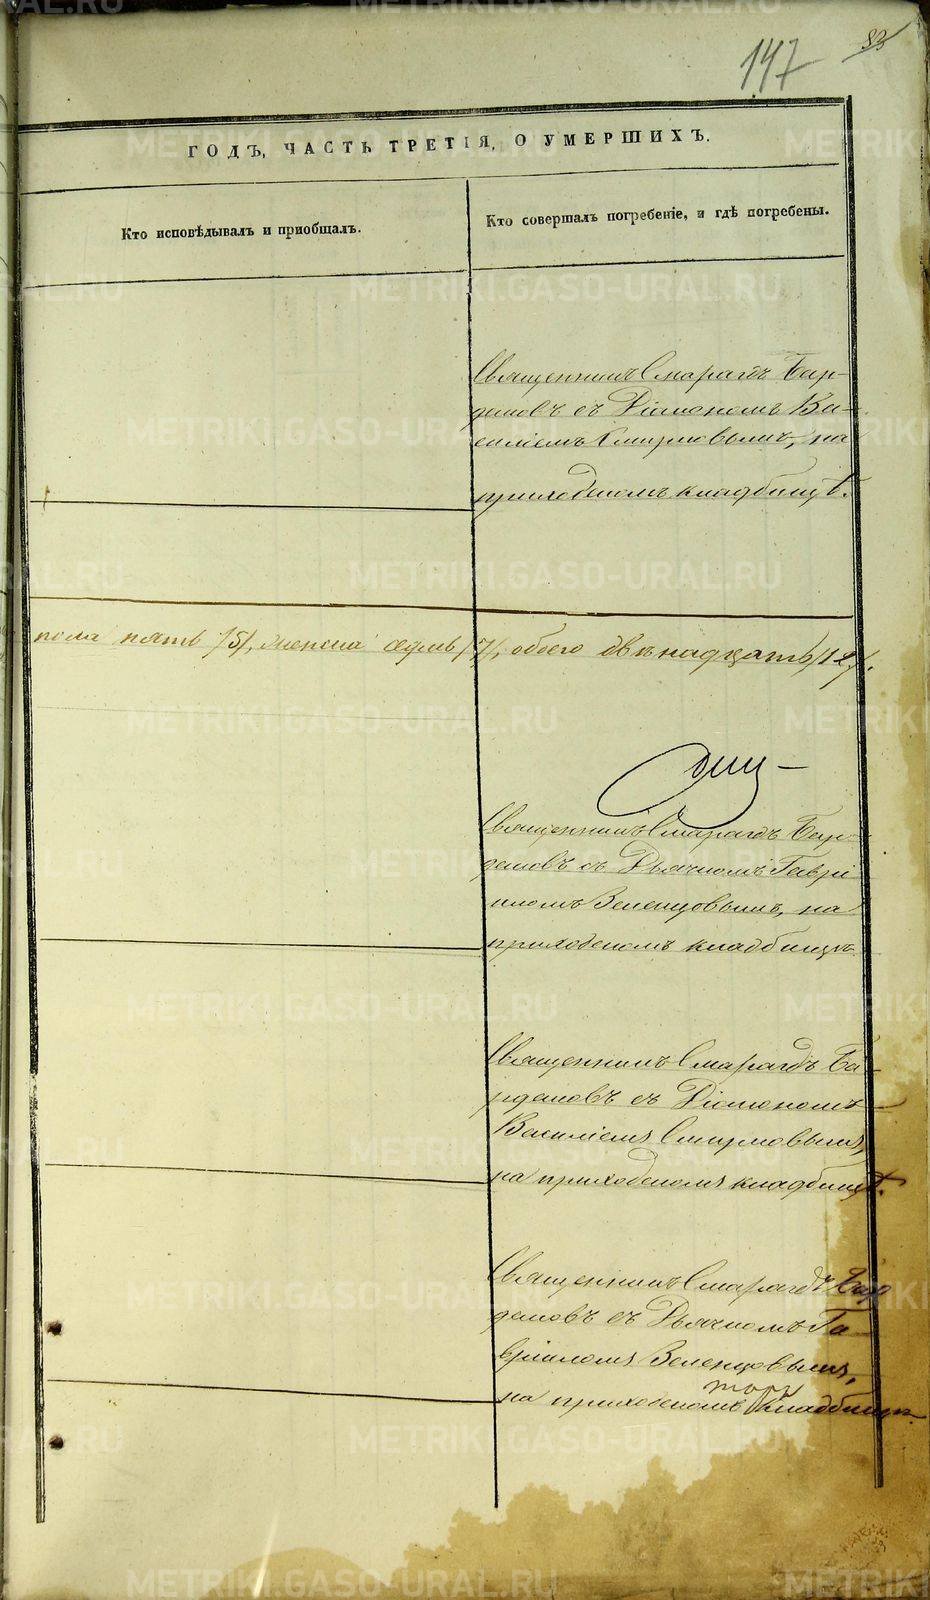 147
83
ГОДЪ, ЧАСТЬ ТРЕТІЯ, О УМЕРШИХЪ.
Кто исповѣдывалъ и пріобщалъ.
Кто совершалъ погребеніе, и гдѣ погребены.
Священникъ Смарагдъ Бир-
дюковъ съ Діакономъ Ва-
силіемъ Смирновымъ, на
приходскомъ кладбищѣ.
пола пять /5/, женска седмь /7/, обоего двѣнадцать /12/.
Священникъ Смарагдъ
съ Дьячкомъ Гаврі
иломъ Зеленцовымъ, на
приходскомъ кладбищѣ
Священникъ Смарагдъ
съ Діакономъ
Василіемъ Смирновымъ,
на приходскомъ кладбищѣ.
Священникъ Смарагдъ
съ Дьячкомъ Га-
вріиломъ Зеленцовымъ,
на приходскомъ кладбищѣ.
METRIKI.GASO-URAL.RU